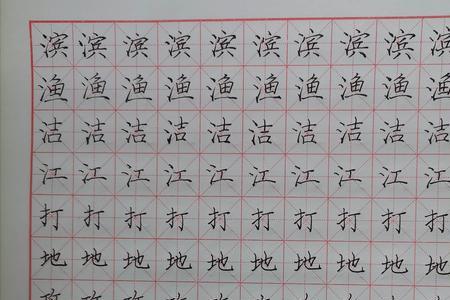 滨滨滨滨滨滨滨滨滨滨
渔渔渔渔渔渔渔渔渔渔
洁洁洁洁洁洁洁洁洁洁
江江江江江江江江江江
打打打打打打打打打打
地地地地地地地地地地